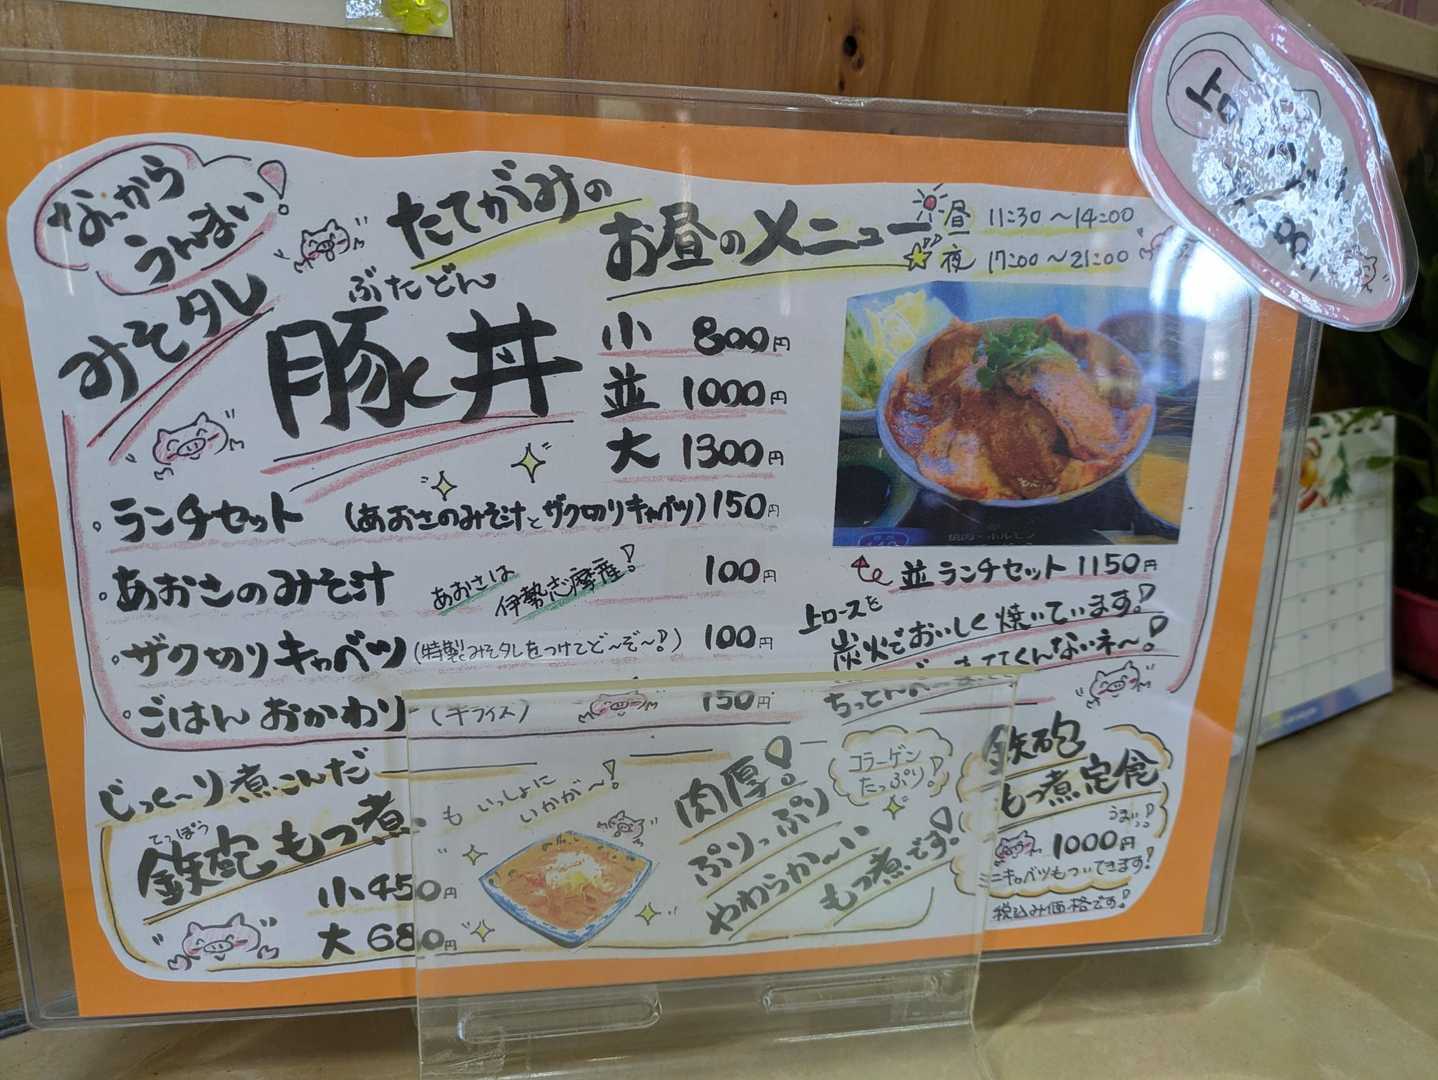 なっから
うんまい!
たてがみの
お昼のメニュー
昼 11:30~14:00
夜 17:00~21:00
みそタレ
ぶたどん
豚丼
小 800円
並 1000円
大 1300円
・ランチセット (あおさのみそ汁とザク切りキャベツ) 150円
・あおさのみそ汁 あおさは伊勢志摩産! 100円
・ザク切りキャベツ (特製みそタレをつけてど~ぞ~!) 100円
・ごはんおかわり (半ライス) 150円
並ランチセット 1150円
上ロースを
炭火でおいしく焼いています!
ネ~!
じっく~り煮こんだ
てっぽう
鉄砲もつ煮
も いっしょに
いかが~!
小 450円
大 680円
肉厚!
ぷりっぷり
やわらか~い
もつ煮です!
コラーゲン
たっぷり!
鉄砲
もつ煮定食
うまっ!
1000円
ミニキャベツもついてきます!
税込み価格です!